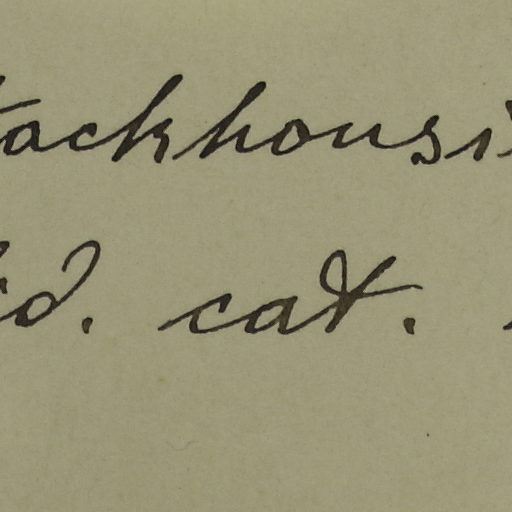 tackhousi
id. cat.